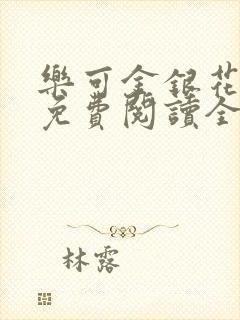 樂可金銀花
免費閱讀全
林露